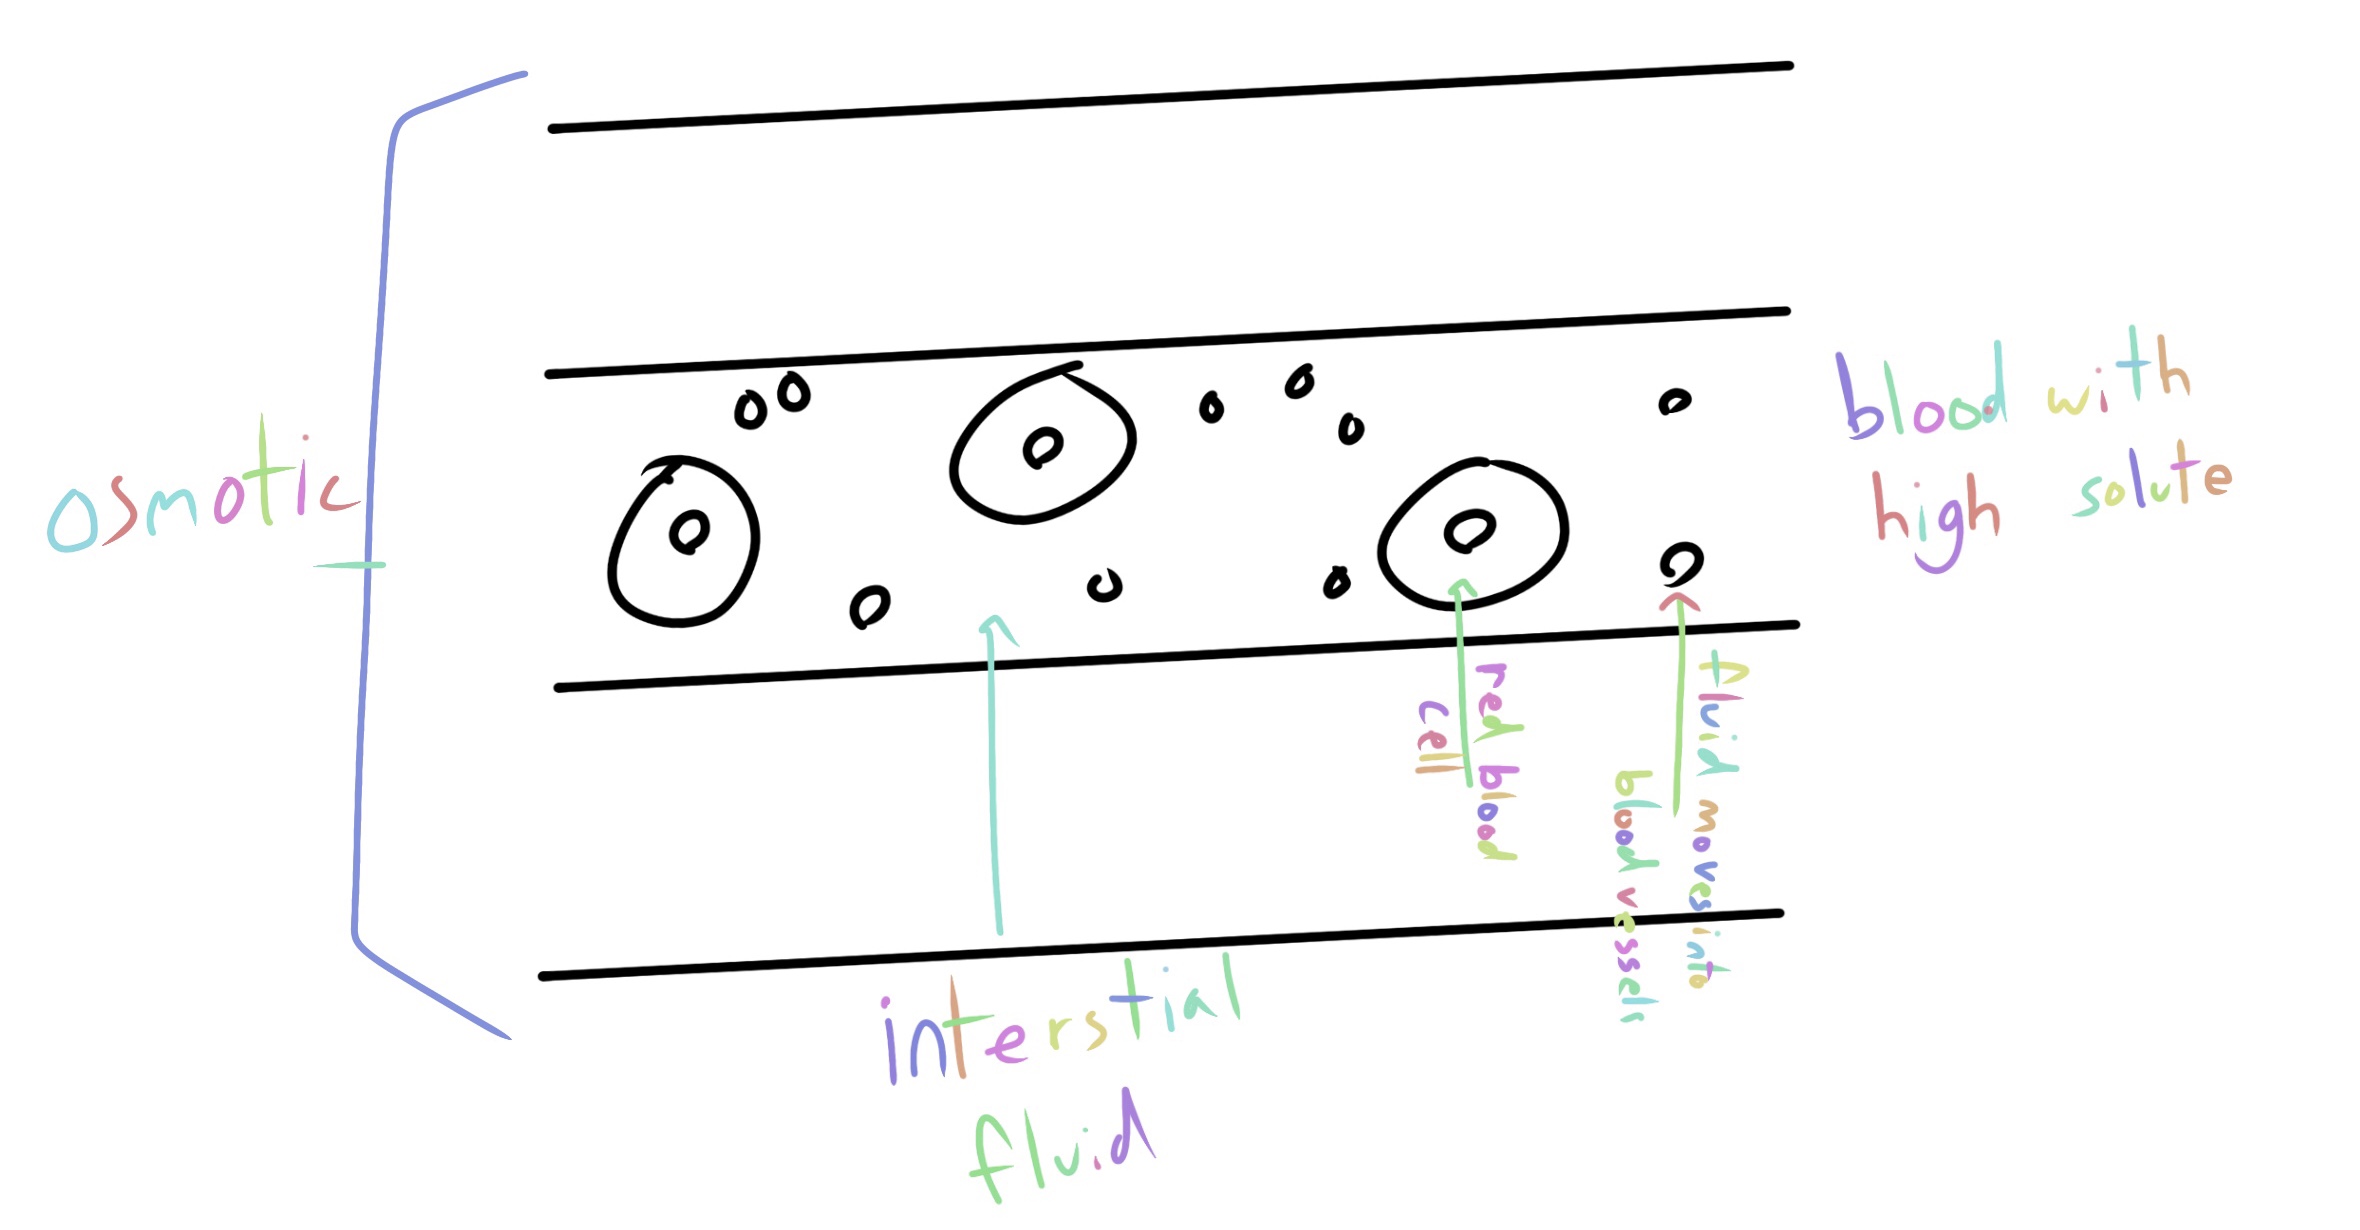 osmotic
blood with
high solute
red blood
cell
fluid moves into
blood vessels
interstial
fluid